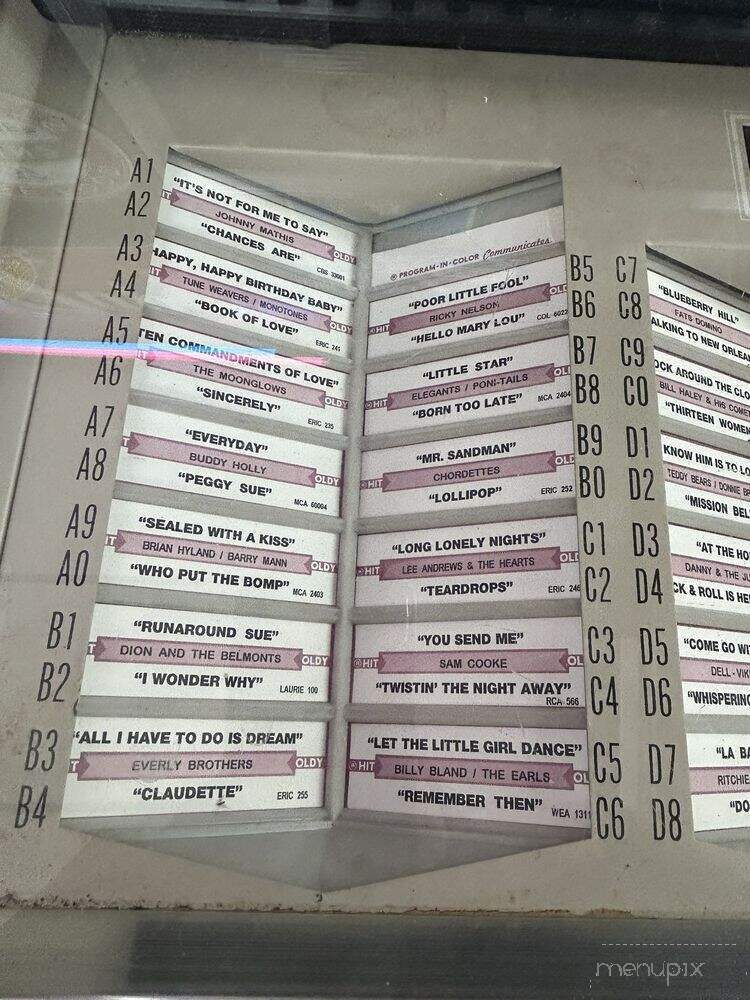 A1
A2
"IT'S NOT FOR ME TO SAY"
JOHNNY MATHIS
"CHANCES ARE"
OLDY
CBS 33601
A3
A4
HAPPY, HAPPY BIRTHDAY BABY"
TUNE WEAVERS / MONOTONES
"BOOK OF LOVE"
OLDY
ERIC 241
A5
A6
TEN COMMANDMENTS OF LOVE"
THE MOONGLOWS
"SINCERELY"
OLDY
ERIC 235
A7
A8
"EVERYDAY"
BUDDY HOLLY
"PEGGY SUE"
OLDY
MCA 60004
A9
A0
"SEALED WITH A KISS"
BRIAN HYLAND / BARRY MANN
"WHO PUT THE BOMP"
OLDY
MCA 2403
B1
B2
"RUNAROUND SUE"
DION AND THE BELMONTS
"I WONDER WHY"
OLDY
LAURIE 100
B3
B4
"ALL I HAVE TO DO IS DREAM"
EVERLY BROTHERS
"CLAUDETTE"
OLDY
ERIC 255
PROGRAM-IN-COLOR Communicates
B5
B6
"POOR LITTLE FOOL"
HIT RICKY NELSON OL
"HELLO MARY LOU"
COL 6022
B7
B8
"LITTLE STAR"
HIT ELEGANTS / PONI-TAILS OL
"BORN TOO LATE"
MCA 2404
B9
B0
"MR. SANDMAN"
HIT CHORDETTES OL
"LOLLIPOP"
ERIC 252
C1
C2
"LONG LONELY NIGHTS"
HIT LEE ANDREWS & THE HEARTS OL
"TEARDROPS"
ERIC 246
C3
C4
"YOU SEND ME"
HIT SAM COOKE OL
"TWISTIN' THE NIGHT AWAY"
RCA 566
C5
C6
"LET THE LITTLE GIRL DANCE"
HIT BILLY BLAND / THE EARLS OL
"REMEMBER THEN"
WEA 1311
C7
C8
"BLUEBERRY HILL"
FATS DOMINO
ALKING TO NEW ORLEA
C9
C0
OCK AROUND THE CLO
BILL HALEY & HIS COMET
"THIRTEEN WOMEN
D1
D2
KNOW HIM IS TO LO
TEDDY BEARS / DONNIE BR
"MISSION BEL
D3
D4
"AT THE HO
DANNY & THE JU
CK & ROLL IS HE
D5
D6
"COME GO WI
DELL-VIK
"WHISPERING
D7
D8
"LA BA
RITCHIE
"DO
menupix